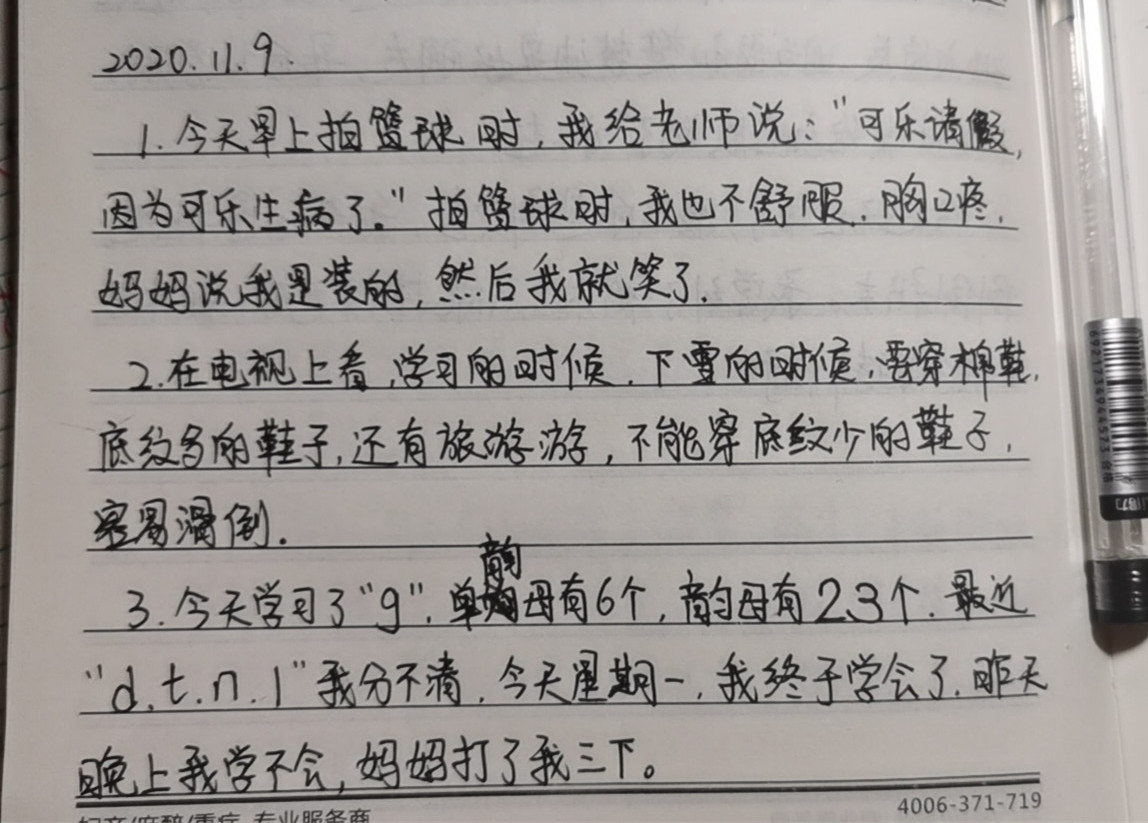 2020.11.9.
1.今天早上拍篮球时,我给老师说:"可乐请假,
因为可乐生病了。"拍篮球时,我也不舒服,胸口疼,
妈妈说我是装的,然后我就笑了.
2.在电视上看,学习的时候,下雪的时候,要穿棉鞋,
底纹多的鞋子,还有旅游游,不能穿底纹少的鞋子,
容易滑倒.
韵
3.今天学习了"g",单母有6个,韵母有23个.最近
"d.t.n.l"我分不清,今天星期一,我终于学会了.昨天
晚上我学不会,妈妈打了我三下。
4006-371-719
妇产/麻醉/重症 专业服务商